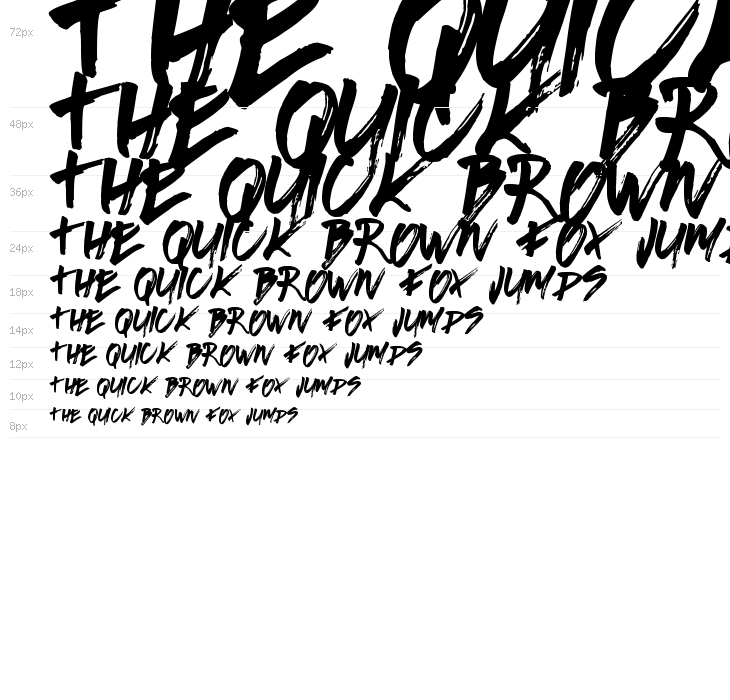 72px THE QUICK
48px THE QUICK BR
36px THE QUICK BROWN
24px THE QUICK BROWN FOX JUM
18px THE QUICK BROWN FOX JUMPS
14px THE QUICK BROWN FOX JUMPS
12px THE QUICK BROWN FOX JUMPS
10px THE QUICK BROWN FOX JUMPS
8px THE QUICK BROWN FOX JUMPS